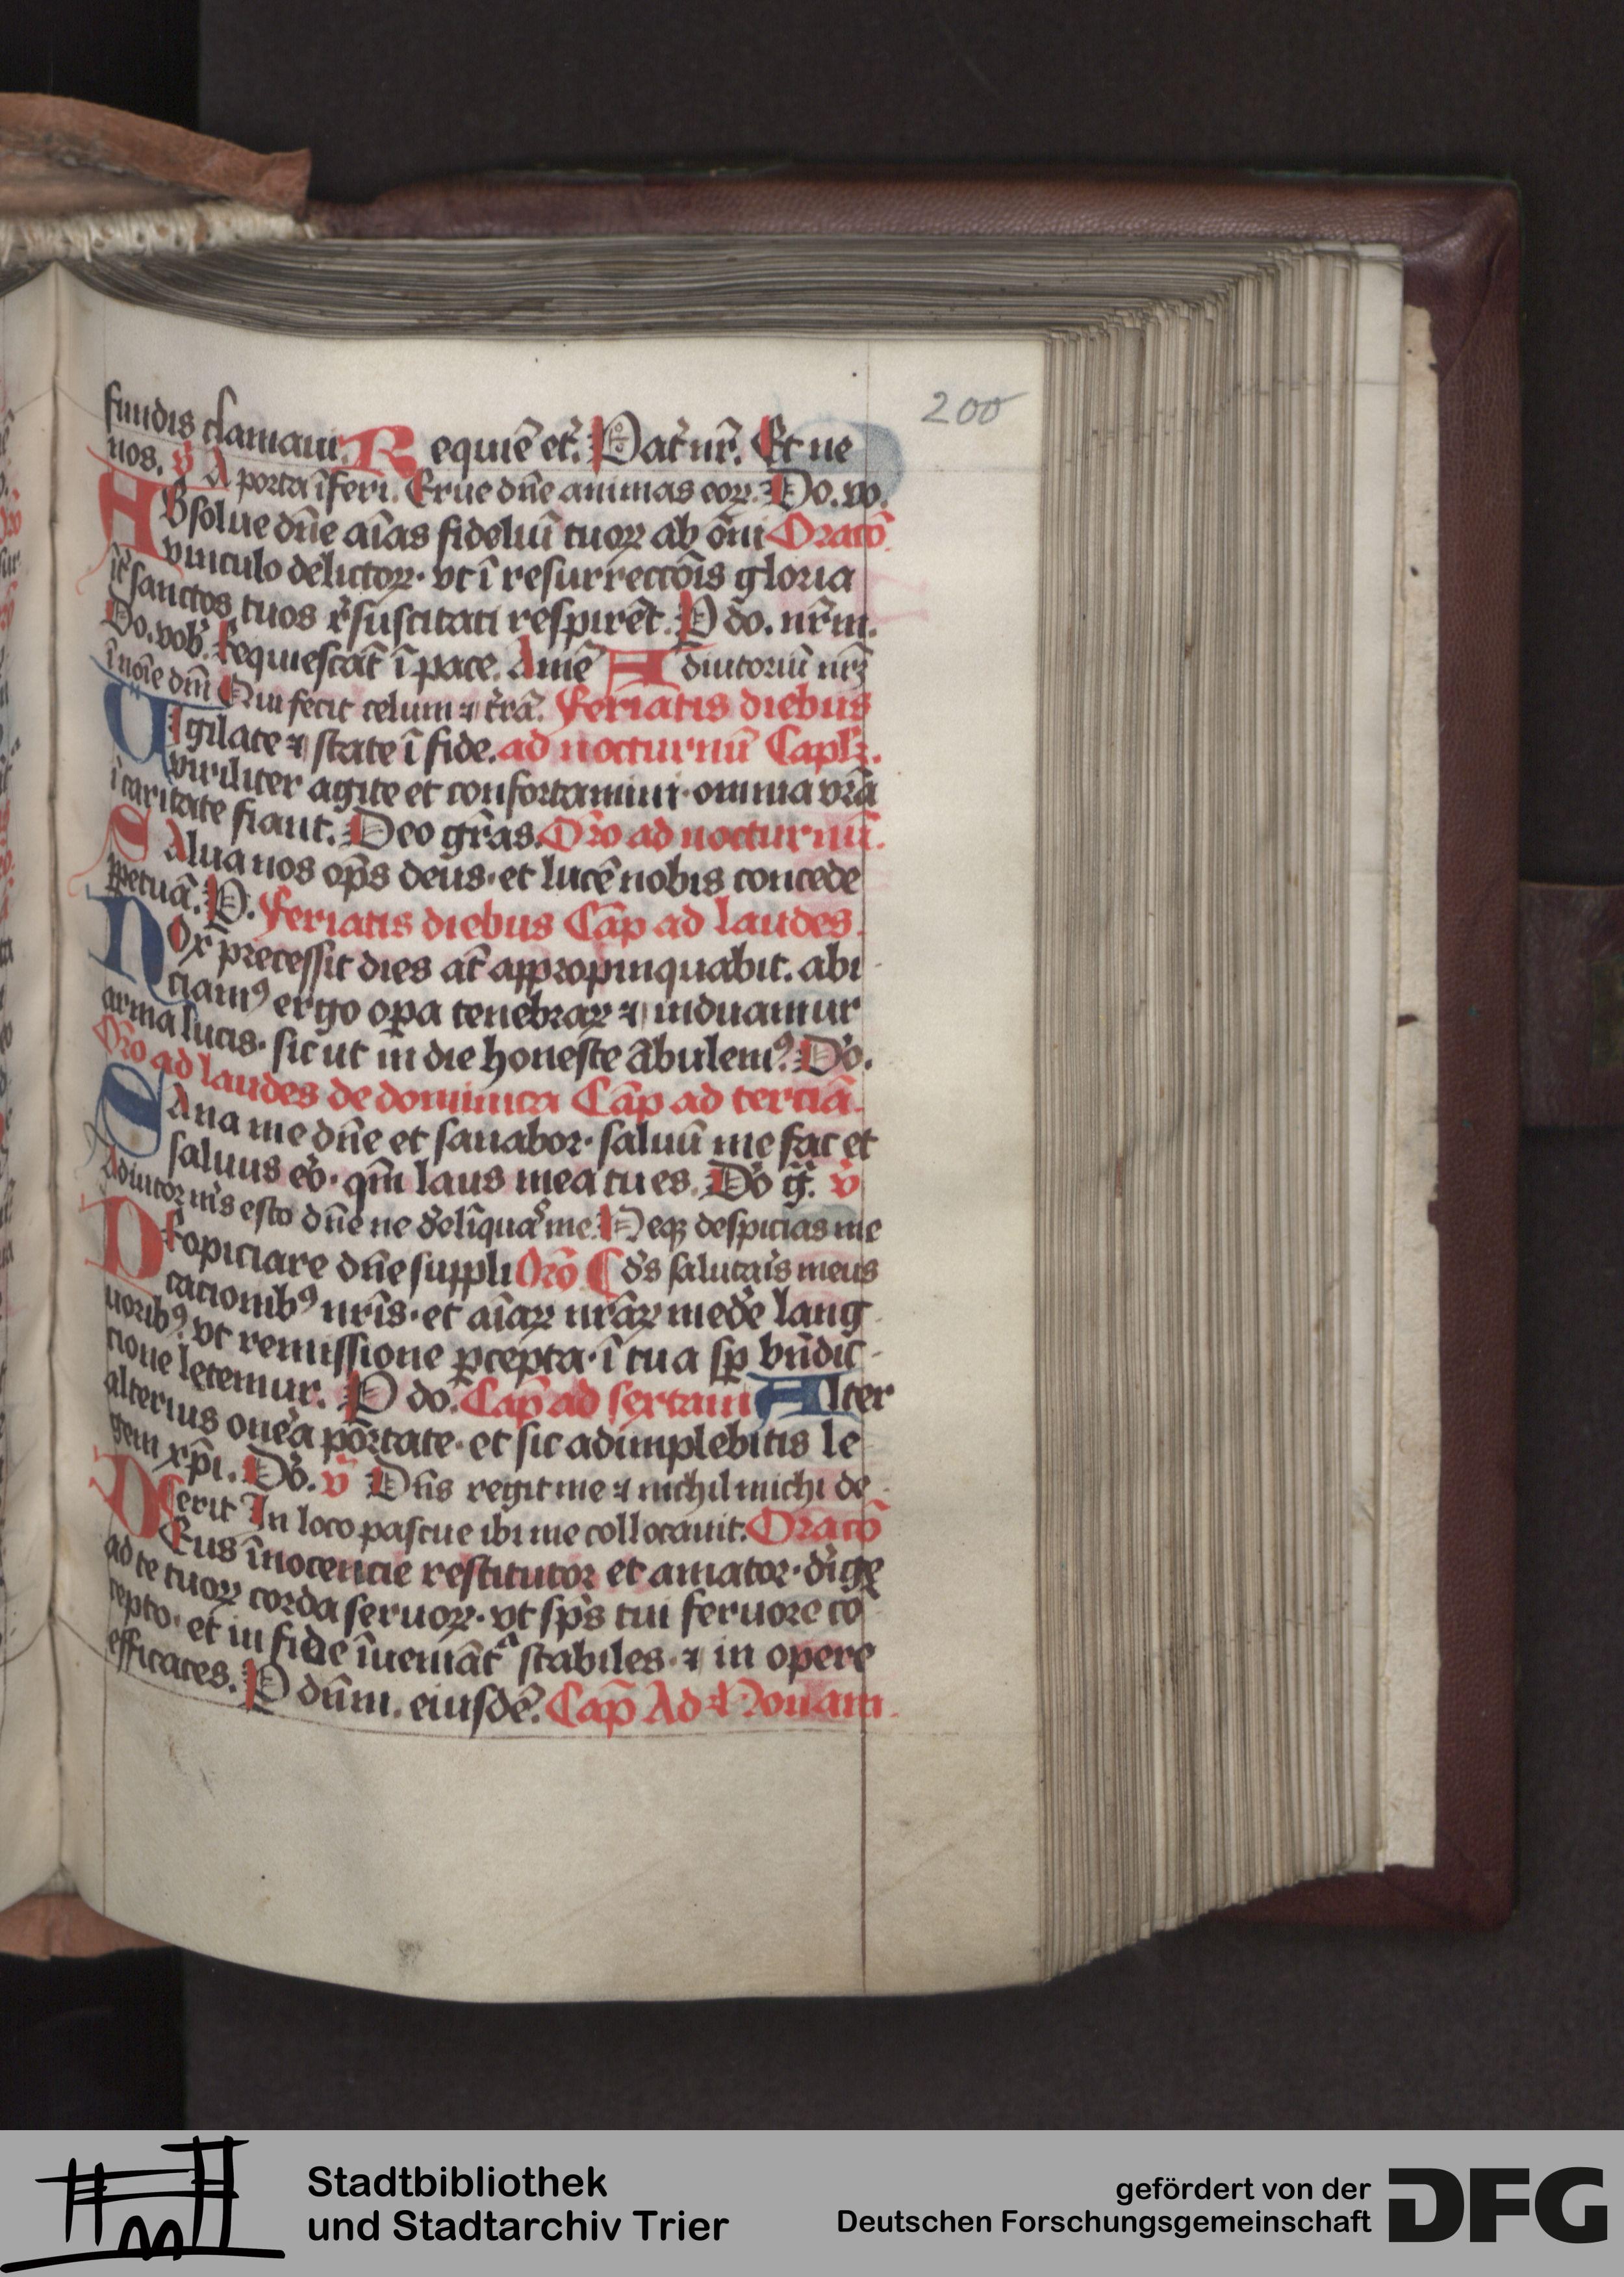 200
fundis clamaui. Requiē et̾. Pat̾ nr̄. Et ne
nos. v̾ A porta īferi. Erue dn̄e animas eoꝝ. Do. vo.
ABsolue dn̄e aīas fideliū tuoꝝ ab om̄i Oratō
vinculo delictoꝝ· vt ī resurrectōis gloria
īt̾ sanctos tuos r̾suscitati respirēt. P do. nr̄m.
Do. vob̾. Requiescāt ī pace. Amē Adiutoriū nrꝫ
ī noīe dn̄i Qui fecit celum ⁊ t̾rā. Feriatis diebus
VIgilate ⁊ state ī fide. ad nocturnū Caplꝫ.
viriliter agite et confortamini· omnia vr̄a
ī caritate fiant. Deo gr̄as. Oro ad nocturnū.
SAlua nos op̄s deus· et lucē nobis concede
ꝑpetuā. P. Feriatis diebus Cap̄ ad laudes.
NOx precessit dies at̄ appropinquabit. abi
ciamꝰ ergo oꝑa tenebraꝝ ⁊ induamur
arma lucis· sicut in die honeste ābulemꝰ. Do.
Oro ad laudes de dominica Cap̄ ad terciā.
SAna me dn̄e et sanabor· saluū me fac et
saluus eo̾· qm̄ laus mea tu es. Do g̾. v̾
Adiutor m̾s esto dn̄e ne d̾elīquas me. Neqꝫ despicias me
PRopiciare dn̄e suppli Orō d̾s salutar̾is meus
cacionibꝰ nr̄is· et aīaꝝ nr̄aꝝ med̾e lang
uoribꝰ. vt remissione ꝑcepta· ī tua sꝑ bn̄dic
tione letemur. P do. Cap̄ ad sextam Alter
alterius one̾a portate· et sic adimplebitis le
gem xp̄i. Do. v̾ Dn̄s regit me ⁊ nichil michi de
erit In loco pascue ibi me collocauit. Oratō
DEus īnocencie restitutor et amator· dirige
ad te tuoꝝ corda seruoꝝ· vt sp̄s tui feruore cō
cepto· et in fide īueniāt̾ stabiles· ⁊ in opere
efficaces. P dn̄m. eiusdē. Cap̄ Ad Nonam.
Stadtbibliothek
und Stadtarchiv Trier
gefördert von der
Deutschen Forschungsgemeinschaft
DFG